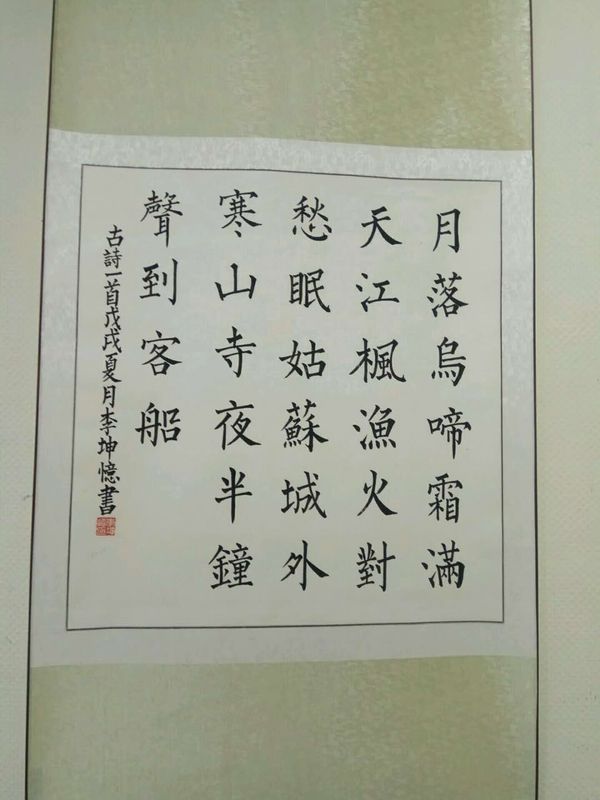 月落烏啼霜滿
天江楓漁火對
愁眠姑蘇城外
寒山寺夜半鐘
聲到客船
古詩一首戊戌夏月李坤憶書